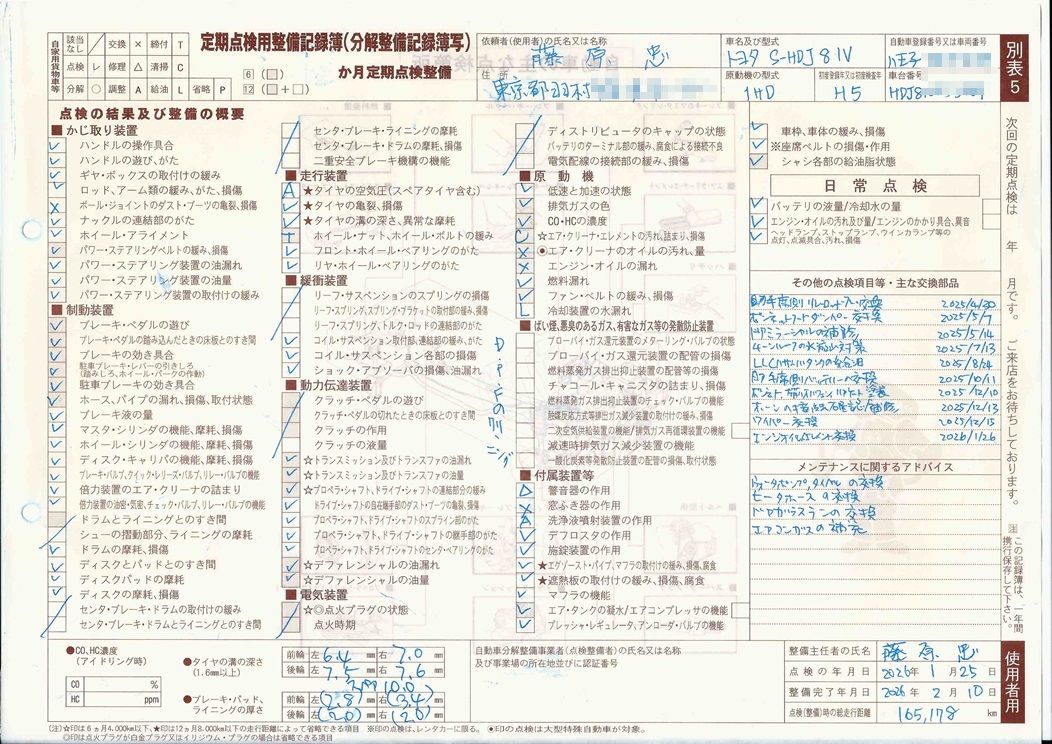 自家用貨物車等
該当なし ／ 交換 × 締付 T
点検 レ 修理 △ 清掃 C
分解 ○ 調整 A 給油 L 省略 P
定期点検用整備記録簿(分解整備記録簿写)
6 (□)
12 (□+□)
か月定期点検整備
依頼者(使用者)の氏名又は名称
藤原 忠
住所
東京都羽村
車名及び型式
トヨタ S-HDJ81V
自動車登録番号又は車両番号
八王子
原動機の型式
1HD
初度登録年又は初度検査年
H5
車台番号
HDJ8
別表5
点検の結果及び整備の概要
■かじ取り装置
ハンドルの操作具合
ハンドルの遊び、がた
ギヤ・ボックスの取付けの緩み
ロッド、アーム類の緩み、がた、損傷
ボール・ジョイントのダスト・ブーツの亀裂、損傷
ナックルの連結部のがた
ホイール・アライメント
パワー・ステアリングベルトの緩み、損傷
パワー・ステアリング装置の油漏れ
パワー・ステアリング装置の油量
パワー・ステアリング装置の取付けの緩み
■制動装置
ブレーキ・ペダルの遊び
ブレーキ・ペダルの踏み込んだときの床板とのすき間
ブレーキの効き具合
駐車ブレーキ・レバーの引きしろ
(踏みしろ、ホイール・パークの作動)
駐車ブレーキの効き具合
ホース、パイプの漏れ、損傷、取付状態
ブレーキ液の量
マスタ・シリンダの機能、摩耗、損傷
ホイール・シリンダの機能、摩耗、損傷
ディスク・キャリパの機能、摩耗、損傷
ブレーキ・バルブ、クイック・レリーズ・バルブ、リレー・バルブの機能
倍力装置のエア・クリーナの詰まり
倍力装置の油密・気密、チェック・バルブ、リレー・バルブの機能
ドラムとライニングとのすき間
シューの摺動部分、ライニングの摩耗
ドラムの摩耗、損傷
ディスクとパッドとのすき間
ディスクパッドの摩耗
ディスクの摩耗、損傷
センタ・ブレーキ・ドラムの取付けの緩み
センタ・ブレーキ・ドラムとライニングとのすき間
センタ・ブレーキ・ライニングの摩耗
センタ・ブレーキ・ドラムの摩耗、損傷
二重安全ブレーキ機構の機能
■走行装置
★タイヤの空気圧(スペアタイヤ含む)
★タイヤの亀裂、損傷
★タイヤの溝の深さ、異常な摩耗
ホイール・ナット、ホイール・ボルトの緩み
フロント・ホイール・ベアリングのがた
リヤ・ホイール・ベアリングのがた
■緩衝装置
リーフ・サスペンションのスプリングの損傷
リーフ・スプリング、スプリング・ブラケットの取付部の緩み、損傷
リーフ・スプリング、トルク・ロッドの連結部のがた
コイル・サスペンション取付部、連結部の緩み、がた
コイル・サスペンション各部の損傷
ショック・アブソーバの損傷、油漏れ
■動力伝達装置
クラッチ・ペダルの遊び
クラッチ・ペダルの切れたときの床板とのすき間
クラッチの作用
クラッチの液量
☆トランスミッション及びトランスファの油漏れ
☆トランスミッション及びトランスファの油量
☆プロペラ・シャフト、ドライブ・シャフトの連結部分の緩み
ドライブ・シャフトの自在継手部のダスト・ブーツの亀裂、損傷
プロペラ・シャフト、ドライブ・シャフトのスプライン部のがた
プロペラ・シャフト、ドライブ・シャフトの継手部のがた
プロペラ・シャフト、ドライブ・シャフトのセンタ・ベアリングのがた
☆デファレンシャルの油漏れ
☆デファレンシャルの油量
■電気装置
☆◎点火プラグの状態
点火時期
DPFのクリーニング
ディストリビュータのキャップの状態
バッテリのターミナル部の緩み、腐食による接続不良
電気配線の接続部の緩み、損傷
■原動機
低速と加速の状態
排気ガスの色
CO・HCの濃度
☆エア・クリーナ・エレメントの汚れ、詰まり、損傷
◉エア・クリーナのオイルの汚れ、量
エンジン・オイルの漏れ
燃料漏れ
ファン・ベルトの緩み、損傷
冷却装置の水漏れ
■ばい煙、悪臭のあるガス、有害なガス等の発散防止装置
ブローバイ・ガス還元装置のメターリング・バルブの状態
ブローバイ・ガス還元装置の配管の損傷
燃料蒸発ガス排出抑止装置の配管等の損傷
チャコール・キャニスタの詰まり、損傷
燃料蒸発ガス排出抑止装置のチェック・バルブの機能
触媒反応方式等排出ガス減少装置の取付けの緩み、損傷
二次空気供給装置の機能/排気ガス再循環装置の機能
減速時排気ガス減少装置の機能
一酸化炭素等発散防止装置の配管の損傷、取付状態
■付属装置等
警音器の作用
窓ふき器の作用
洗浄液噴射装置の作用
デフロスタの作用
施錠装置の作用
★エグゾースト・パイプ、マフラの取付けの緩み、損傷、腐食
★遮熱板の取付けの緩み、損傷、腐食
マフラの機能
エア・タンクの凝水/エアコンプレッサの機能
プレッシャ・レギュレータ、アンローダ・バルブの機能
車枠、車体の緩み、損傷
※座席ベルトの損傷・作用
シャシ各部の給油脂状態
日常点検
バッテリの液量/冷却水の量
エンジン・オイルの汚れ及び量/エンジンのかかり具合、異音
ヘッドランプ、ストップランプ、ウインカランプ等の
点灯、点滅具合、汚れ、損傷
その他の点検項目等・主な交換部品
2025/4/30
2025/5/7
ドアミラーシャルの補修 2025/5/14
2025/7/13
2025/8/24
助手席側バッテリーの交換 2025/10/11
2025/12/10
2025/12/13
ワイパー交換 2025/12/15
エンジンオイルエレメント交換 2026/1/26
メンテナンスに関するアドバイス
ウォーターポンプ、タイベルの交換
ヒーターホースの交換
ドアガラスランの交換
エアコンガスの補充
次回の定期点検は 年 月です。ご来店をお待ちしております。
注 この記録簿は、一年間携行保存して下さい。
●CO、HC濃度
(アイドリング時)
CO %
HC ppm
●タイヤの溝の深さ
(1.6mm以上)
前輪 左 6.4 mm 右 7.0 mm
後輪 左 7.5 mm 右 7.6 mm
●ブレーキ・パッド、
ライニングの厚さ
前輪 左 (2.8) mm 右 (3.4) mm
後輪 左 (2.0) mm 右 (2.0) mm
自動車分解整備事業者(点検整備者)の氏名又は名称
及び事業場の所在地並びに認証番号
整備主任者の氏名 藤原 忠
点検の年月日 2026年 1月 25日
整備完了年月日 2026年 2月 10日
点検(整備)時の総走行距離 165,178 km
使用者用
(注)☆印は6ヵ月4,000km以下、★印は12ヶ月8,000km以下の走行距離によって省略できる項目 ※印の点検は、レンタカーに限る。 ◉印の点検は大型特殊自動車が対象。
◎印は点火プラグが白金プラグ又はイリジウム・プラグの場合は省略できる項目